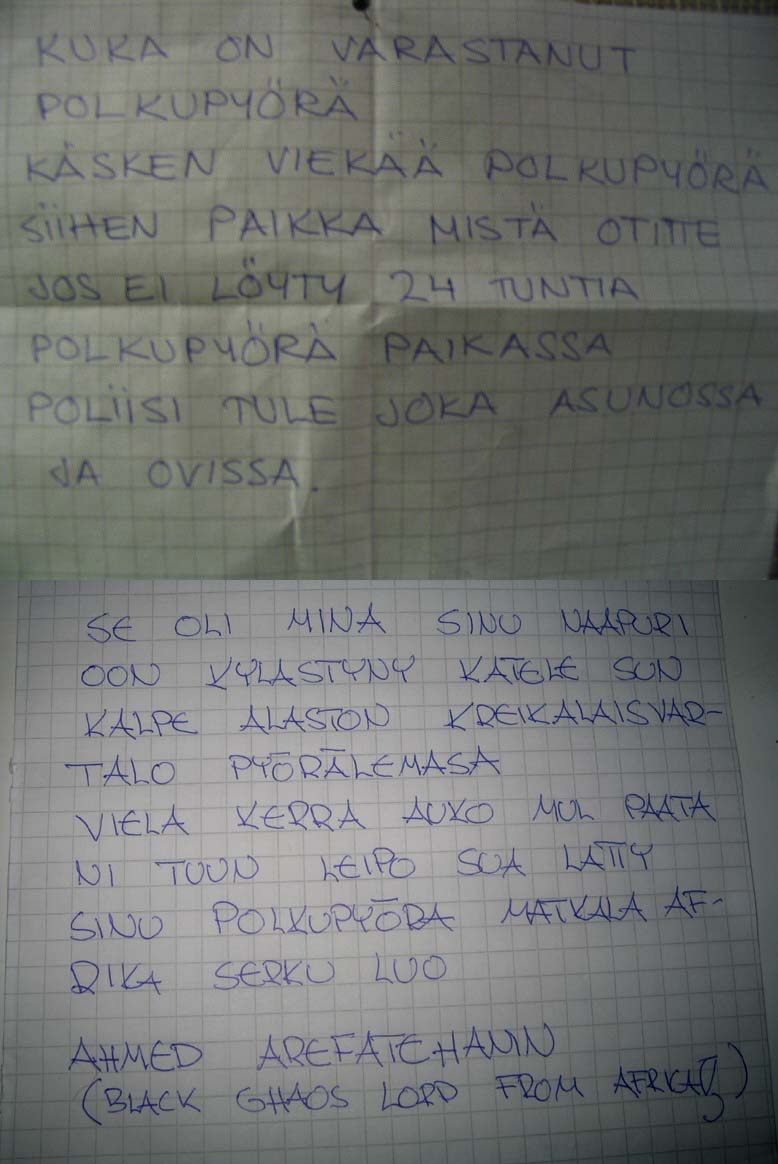 KUKA ON VARASTANUT
POLKUPYÖRÄ
KÄSKEN VIEKÄÄ POLKUPYÖRÄ
SIIHEN PAIKKA MISTÄ OTITTE
JOS EI LÖYTY 24 TUNTIA
POLKUPYÖRÄ PAIKASSA
POLIISI TULE JOKA ASUNOSSA
JA OVISSA.
SE OLI MINÄ SINU NAAPURI
OON KYLASTYNY KATELE SUN
KALPE ALASTON KREIKALAISVAR-
TALO PYÖRÄLEMASA
VIELA KERRA AUKO MUL PAATA
NI TUUN LEIPO SUA LÄTTY
SINU POLKUPYÖRA MATKALA AF-
RIKA SERKU LUO
AHMED AREFATEHANIN
(BLACK GHAOS LORD FROM AFRICA)